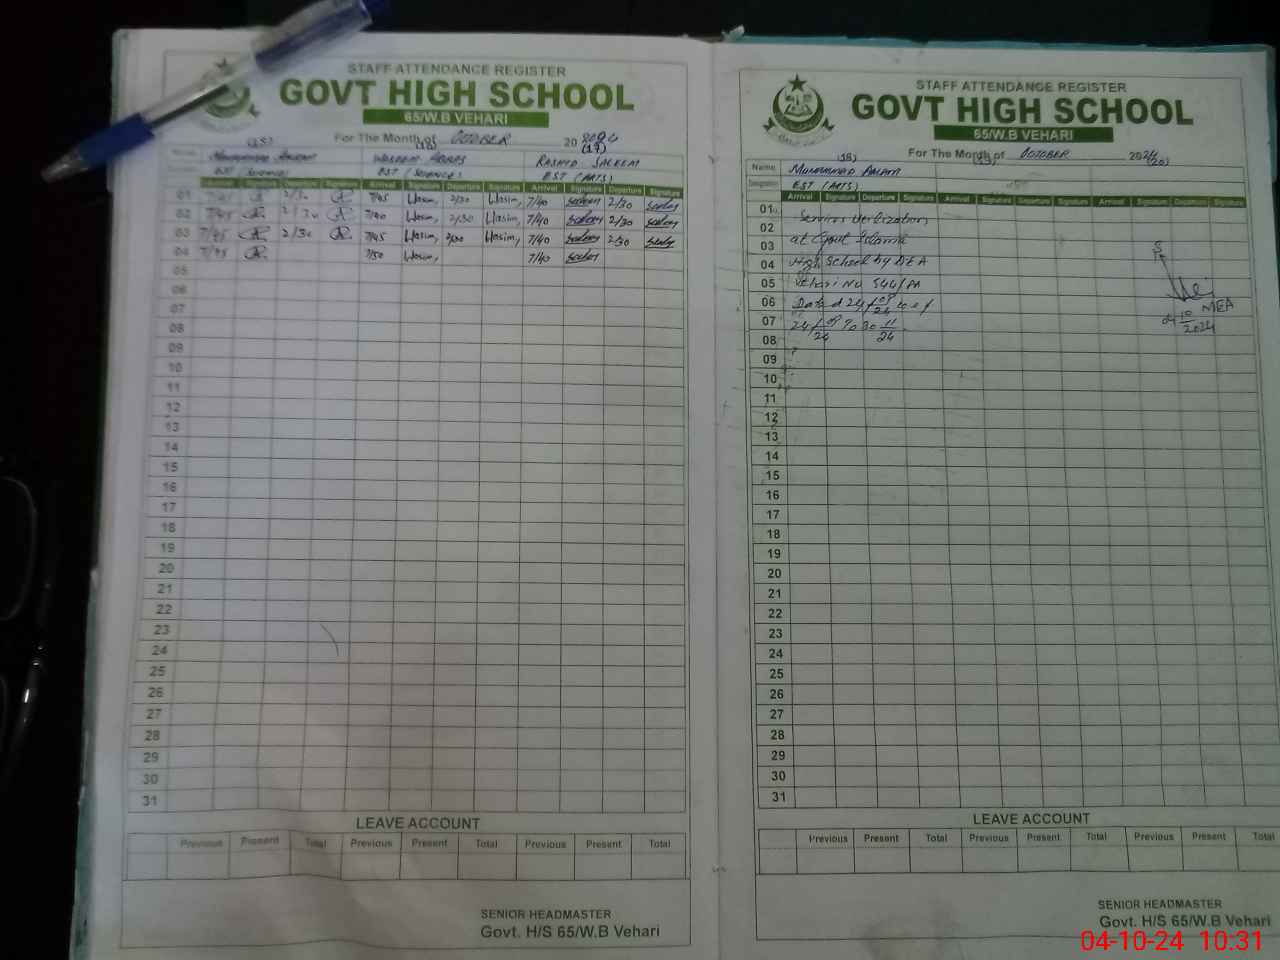 STAFF ATTENDANCE REGISTER
GOVT HIGH SCHOOL
65/W.B VEHARI
For The Month of OCTOBER 20
(18) (17)
WASEEM ABBAS RASHID SALEEM
EST (SCIENCE) EST (ARTS)
Arrival Signature Departure Signature Arrival Signature Departure Signature
01 2/30 7/45 Wasim, 2/30 Wasim, 7/40 saleem 2/30 saleem
02 7/45 2/30 7/40 Wasim, 2/30 Wasim, 7/40 saleem 2/30 saleem
03 7/45 2/30 7/45 Wasim, 2/30 Wasim, 7/40 saleem 2/30 saleem
04 7/45 7/50 Wasim, 7/40 saleem
05
06
07
08
09
10
11
12
13
14
15
16
17
18
19
20
21
22
23
24
25
26
27
28
29
30
31
LEAVE ACCOUNT
Previous Present Total Previous Present Total Previous Present Total
SENIOR HEADMASTER
Govt. H/S 65/W.B Vehari
STAFF ATTENDANCE REGISTER
GOVT HIGH SCHOOL
65/W.B VEHARI
For The Month of OCTOBER 2024
(18) (20)
Name MUHAMMAD
EST (ARTS)
Arrival Signature Departure Signature Arrival Signature Departure Signature Arrival Signature Departure Signature
01 Service Utilization
02 at Govt Islamia
03 High School by DEA
04 Vehari No 544/PA
05 Dated 24/09/24 w.e.f
06 24/09/24 To 30 11/24
07
08
09
10
11
12
13
14
15
16
17
18
19
20
21
22
23
24
25
26
27
28
29
30
31
MEA
04 10/2024
LEAVE ACCOUNT
Previous Present Total Previous Present Total Previous Present Total
SENIOR HEADMASTER
Govt. H/S 65/W.B Vehari
04-10-24 10:31